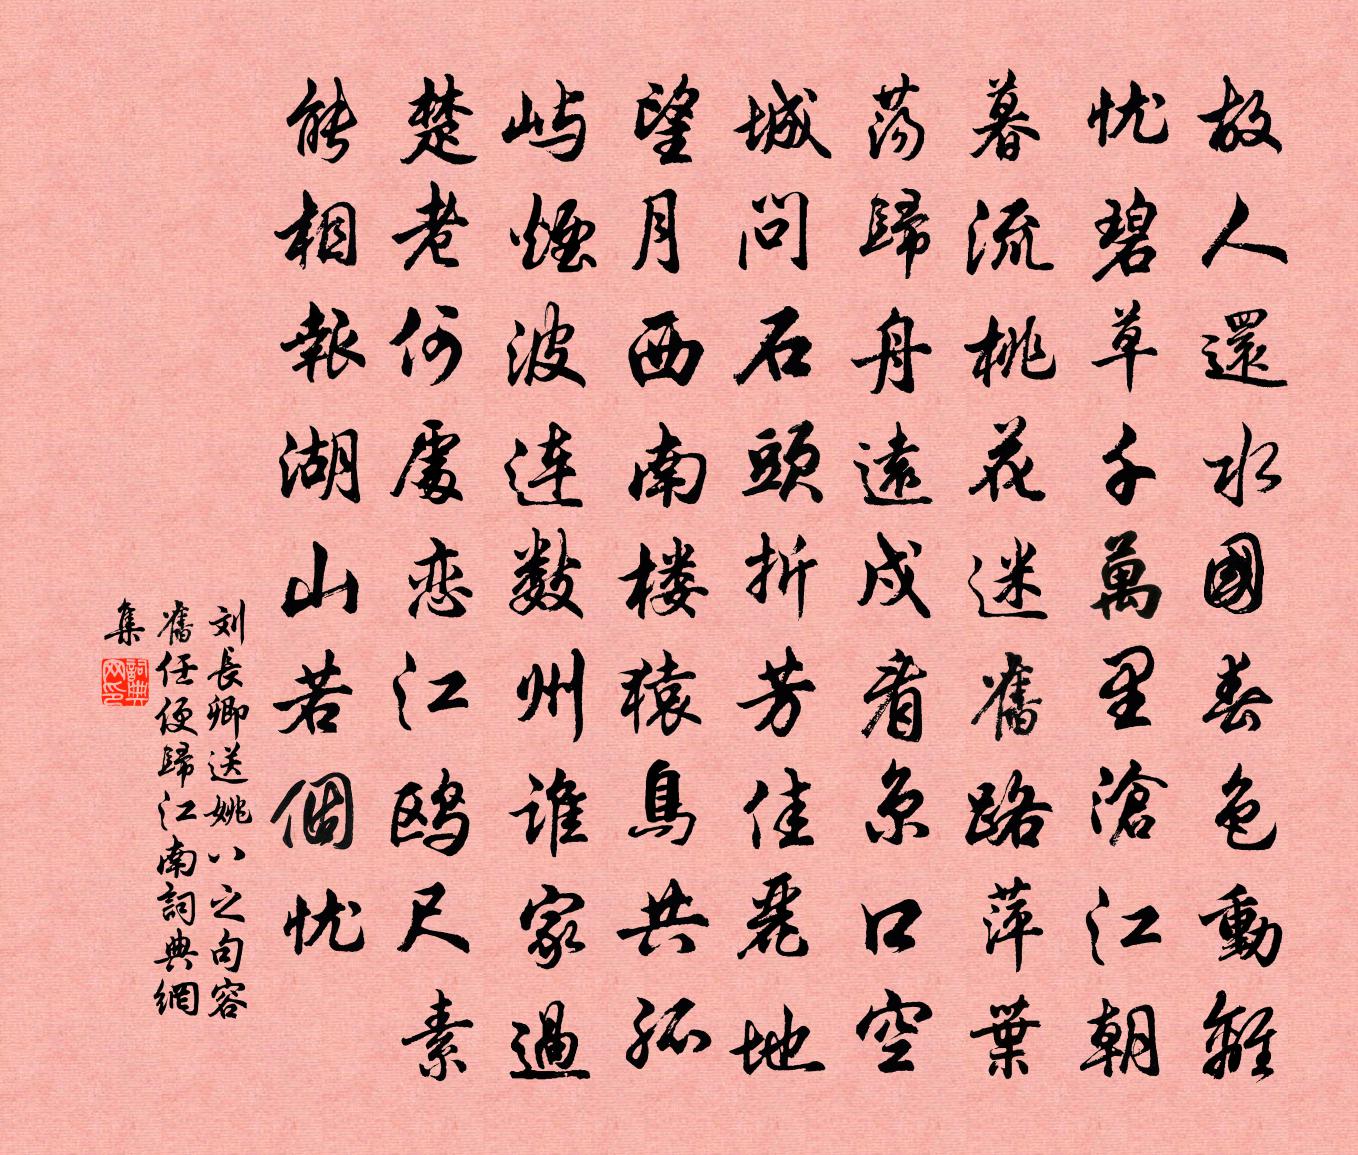 故人還水國春色動離
忧碧草千萬里滄江朝
暮流桃花迷舊路萍葉
蕩歸舟遠戍看京口空
城問石頭折芳佳麗地
望月西南楼猿鳥共孤
屿煙波連數州誰家過
楚老何處恋江鸥尺素
能相報湖山若個忧
刘長卿送姚八之句容
舊任便歸江南詞典網
集
詞典网印